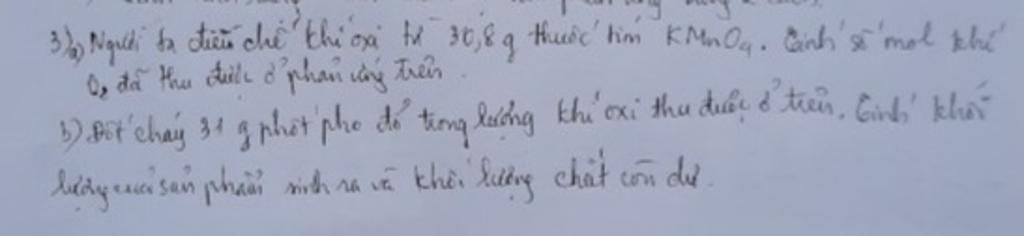 3)a) Người ta điều chế khí oxi từ 30,8 g thuốc tím KMnO4. Tính số mol khí
O2 đã thu được ở phản ứng trên.
b) Đốt cháy 31 g phốt pho đỏ trong lượng khí oxi thu được ở trên. Tính khối
lượng của sản phẩm sinh ra và khối lượng chất còn dư.